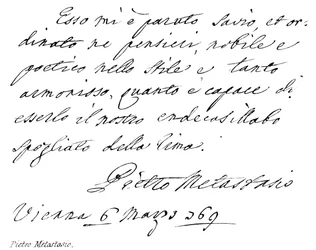 Esso mi è paruto savio, et or-
dinato ne pensieri, nobile e
poetico nello stile e tanto
armonioso, quanto è capace di
esserlo il nostro endecasillabo
spogliato della rima.
Pietro Metastasio
Vienna 6 Marzo 769
Pietro Metastasio.